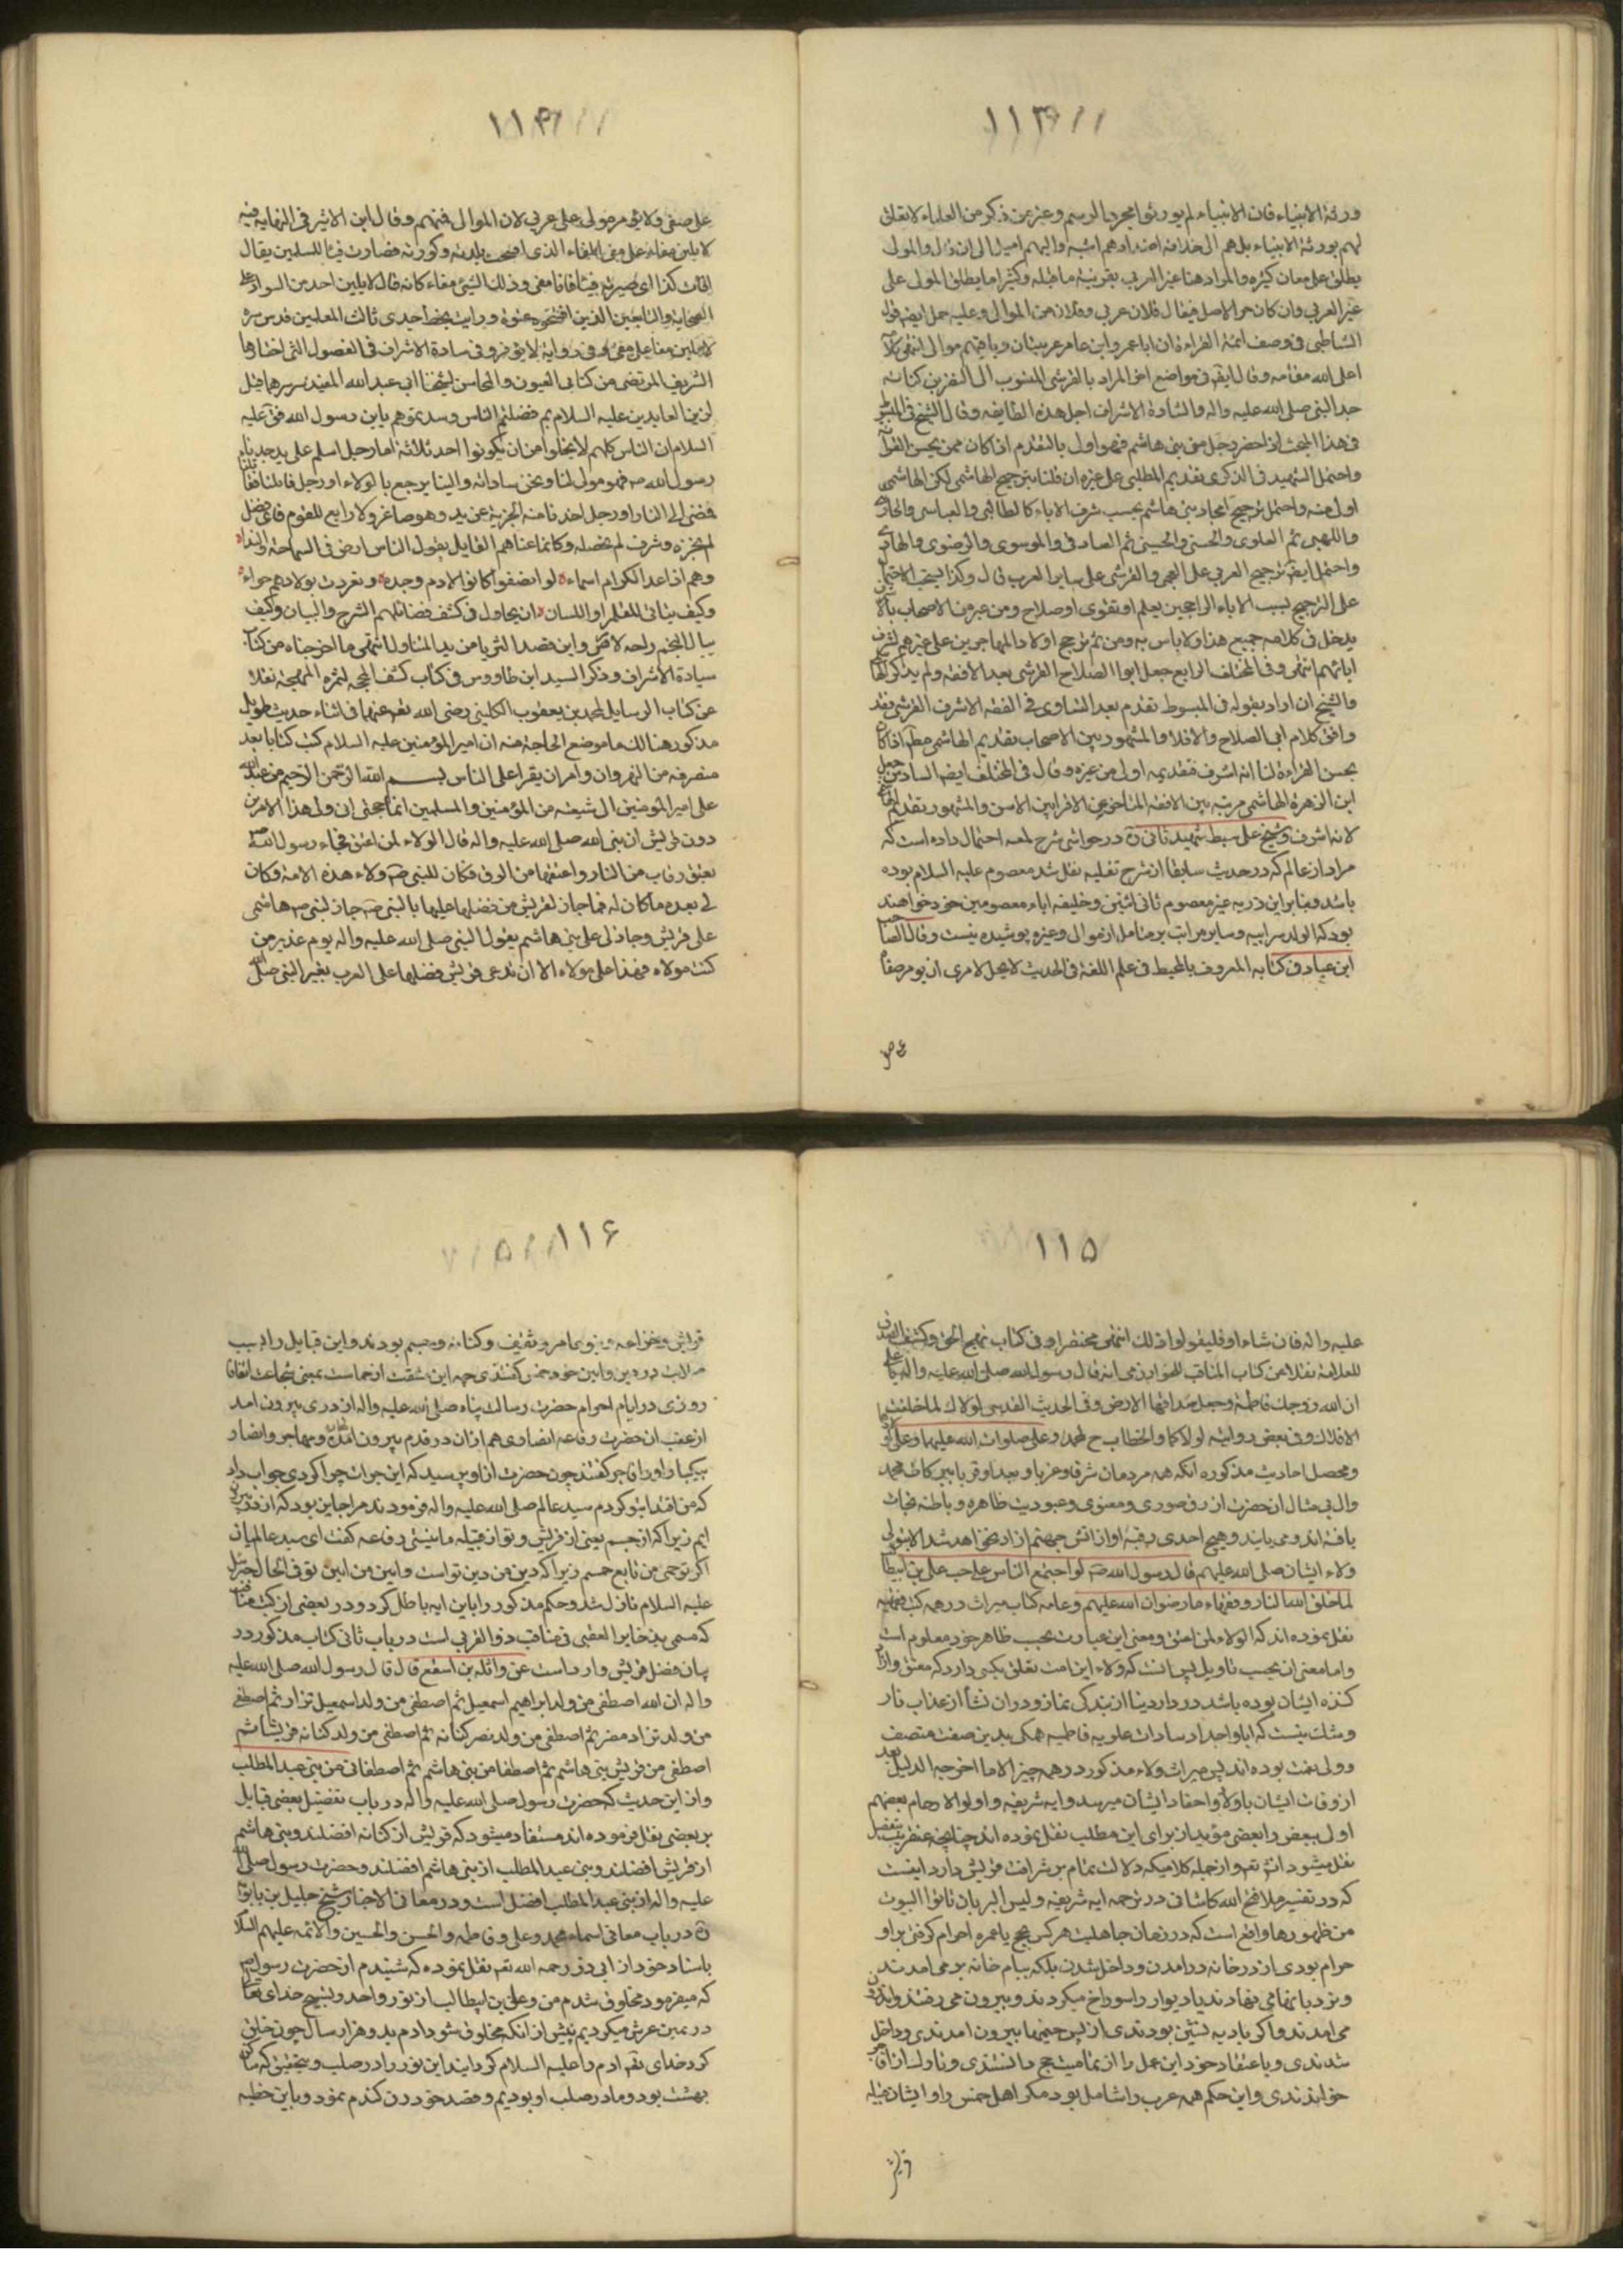 ۱۱۳
ورثة الانبياء فان الانبياء لم يورثوا مجرد الرسم وغيرمن ذكر من العلماء لا تعلق
لهم بورثة الانبياء بل هم الى اضدادهم اشبه واليهم اميل الى ان قال والمولى
يطلق على معان كثيرة والمراد هنا غير العربي بقرينة ما قبله وكثيرا ما يطلق المولى على
غير العربي وان كان حر الاصل فيقال فلان عربي وفلان من الموالى وعليه حمل ايضا قول
الشاطبي في وصف ائمة القراءة ان ابا عمرو وابن عامر عربيان وباقيهم موالى انتهى
اعلى الله مقامه وقال ايضا في مواضع اخر المراد بالقرشي المنسوب الى النضر بن كنانه
جد النبي صلى الله عليه واله والسادة الاشراف اجل هذه الطايفه وقال الشيخ في المبسوط
في هذا المبحث اذا حضر رجل من بني هاشم فهو اولى بالتقدم اذا كان ممن يحسن القراءة
واحتمل الشهيد في الذكرى تقديم المطلبي على غيره ان قلنا بترجيح الهاشمي لكن الهاشمي
اولى منه واحتمل ترجيح امجاد بني هاشم بحسب شرف الاباء كالطالبي والعباسي والحارثي
واللهبي ثم العلوي والحسني والحسيني ثم الصادقي والموسوي والرضوي والهادي
واحتمل ايضا ترجيح العربي على العجمي والقرشي على ساير العرب قال وكذا ينسحب الاحتمال
على الترجيح بسبب الاباء الراجحين بعلم او تقوى او صلاح ومن عبر من الاصحاب بالاشرف
يدخل في كلامه جميع هذا ولا باس به ومن ثم ترجح اولاد المهاجرين على غيرهم لشرف
ابائهم انتهى وفي المختلف الرابع جعل ابوا الصلاح القرشي بعد الافقه ولم يذكر الهاشمي
والشيخ ان اراد بقوله في المبسوط تقدم بعد التساوى في الفقه الاشرف القرشي فقد
وافق كلام ابي الصلاح والا فلا والمشهور بين الاصحاب تقديم الهاشمي مطلقا اذا كان
يحسن القراءة لنا انه اشرف فتقديمه اولى من غيره وقال في المختلف ايضا السادس جعل
ابن الزهرة الهاشمي مرتبه بين الافقه المتاخر عن الاقرا بين الاسن والمشهور تقديم الهاشمي
لانه اشرف وشيخ على سبط شهيد ثانى ره در حواشى شرح لمعه احتمال داده است كه
مراد از عالم كه در حديث سابقا از شرح نفليه نقل شد معصوم عليه السلام بوده
باشد و بنابراين ذريه غير معصوم ثانى اثنين و خليفه اباء معصومين خود خواهند
بود كه الولد سر ابيه و ساير مراتب بر متامل از موالى و غيره پوشيده نيست وقال الصاحب
ابن عباد في كتابه المعروف بالمحيط في علم اللغة في الحديث لا يحل لامرئ ان يومر مفاء
۱۱۴
على صفي ولا يؤمر مولى على عربي لان الموالى فيئهم وقال ابن الاثير في النهايه فيه
لا يلين مفاء على مفيء المفاء الذى افتتحت بلدته وكورته فصارت فيئا للمسلمين يقال
افأت كذا اى صيرته فيئا فانا مفيء وذلك الشئ مفاء كانه قال لا يلين احد من السواد على
الصحابة والتابعين الذين افتتحوه عنوة ورايت بخط جدى ثالث المعلمين قدس سره
لا يلين مفاء على مفيء وفي رواية لا يؤمر وفي سادة الاشراف في الفصول التى اختارها
الشريف المرتضى من كتابى العيون والمحاسن لشيخنا ابى عبد الله المفيد قدس سرهما قيل
لزين العابدين عليه السلام بم فضلتم الناس وسدتموهم يابن رسول الله فقال عليه
السلام ان الناس كلهم لا يخلوا من ان يكونوا احد ثلاثة اما رجل اسلم على يد جدنا
رسول الله ص فهو مولى لنا ونحن ساداته والينا يرجع بالولاء او رجل قاتلنا فقتلناه
فمضى الى النار او رجل اخذنا منه الجزية عن يد وهو صاغر ولا رابع للقوم فاى فضل
لم نحزه وشرف لم نحصله وكانما عناهم القايل بقول الناس ارض في السماحة والندا
وهم اذا عد الكرام اسماء لو انصفوا كانوا لادم وحده وتفردت بولادهم حواء
وكيف يتاتى للقلم او اللسان ان يحاول في كشف فضائلهم الشرح والبيان وكيف
ينال النجم راحة لامس واين قصد الثريا من يد المتناول انتهى ما اخرجناه من كتاب
سيادة الاشراف وذكر السيد ابن طاووس في كتاب كشف المحجة لثمرة المهجة نقلا
عن كتاب الرسايل لمحمد بن يعقوب الكليني رضي الله تعالى عنهما في اثناء حديث طويل
مذكور هنالك ما موضع الحاجة منه ان امير المؤمنين عليه السلام كتب كتابا بعد
منصرفه من النهروان وامر ان يقرا على الناس بسم الله الرحمن الرحيم من عبد الله
على امير المؤمنين الى شيعته من المؤمنين والمسلمين انما حجتى انى ولى هذا الامر من
دون قريش ان نبي الله صلى الله عليه واله قال الولاء لمن اعتق فجاء رسول الله
بعتق رقاب من النار واعتقها من الرق فكان للنبي ص ولاء هذه الامة وكان
لي بعده ما كان له فما جاز لقريش من فضلها عليها بالنبي ص جاز لبني هاشم
على قريش وجاز لى على بني هاشم بقول النبي صلى الله عليه واله يوم غدير من
كنت مولاه فهذا على مولاه الا ان تدعى قريش فضلها على العرب بغير النبي صلى الله
۱۱۵
عليه واله فان شاءوا فليقولوا ذلك انتهى مختصرا وفي كتاب نهج الحق وكشف الصدق
للعلامة نقلا من كتاب المناقب للخوارزمي انه قال رسول الله صلى الله عليه واله يا على
ان الله زوجك فاطمة وجعل صداقها الارض وفي الحديث القدسي لولاك لما خلقت
الافلاك وفي بعض رواية لولاكما والخطاب ح لمحمد وعلى صلوات الله عليهما وعلى
ومحصل احاديث مذكوره انكه همه مردمان شرقا وغربا و بعدا و قربا ببركات محمد
وال بى مثال انحضرت از رق صورى و معنوى و عبوديت ظاهره و باطنه نجات
يافته اند و مى يابند و هيچ احدى رقبه او از اتش جهنم ازاد نخواهد شد الا بتولى
ولاء ايشان صلى الله عليهم قال رسول الله ص لو اجتمع الناس على حب على بن ابيطالب
لما خلق الله النار و فقهاء ما رضوان الله عليهم و عامه كتاب ميراث در همه كتب فقهيه
نقل نموده اند كه الولاء لمن اعتق و معنى اين عبارت بحسب ظاهر خود معلوم است
و اما معنى ان بحسب تاويل پس انست كه ولاء اين امت تعلق بكسى دارد كه معتق و ازاد
كننده ايشان بوده باشد در دار دنيا از بندكى نماز و در ان نشأ از عذاب نار
و شك نيست كه ابا و اجداد سادات علويه فاطميه همكى بدين صفت متصف
و ولى نعمت بوده اند پس ميراث ولاء مذكور در همه چيز الا ما اخرجه الدليل بعد
از وفات ايشان باولاد و احفاد ايشان ميرسد و ايه شريفه و اولوا الارحام بعضهم
اولى ببعض را بعضى مؤيد از براى اين مطلب نقل نموده اند چنانچه عنقريب بتفصيل
نقل ميشود انشاء الله تعالى و از جمله كلاميكه دلالت تمام بر شرافت قريش دارد اينست
كه در تفسير ملا فتح الله كاشانى در ترجمه ايه شريفه و ليس البر بان تاتوا البيوت
من ظهورها واقع است كه در زمان جاهليت هر كس بحج يا عمره احرام كرفتى بر او
حرام بودى از در خانه در امدن و داخل شدن بلكه ببام خانه بر مى امدند
و نردبانها مى نهادند يا ديوار را سوراخ ميكردند و بيرون مى رفتند و اندرون
مى امدند و اكر باديه نشين بودندى از پس خيمها بيرون امدندى و داخل
شدندى و باعتقاد خود اين عمل را از تماميت حج دانستندى و
خواندندى و اين حكم همه عرب را شامل بود مكر اهل حمس را و ايشان قبيله
قريش
۱۱۶
قريش و خزاعه و بنو عامر و ثقيف و كنانه و جشم بودند و اين قبايل را بسبب
صلابت در دين و ايين خود حمس كفتندى چه اين مشتق از حماست بمعنى شجاعت اتفاقا
روزى در ايام احرام حضرت رسالت پناه صلى الله عليه واله از درى بيرون امد
از عقب انحضرت رفاعه انصارى هم از ان در قدم بيرون امدن و مهاجر و انصار
بيكبار او را فاجر كفتند چون حضرت از او پرسيد كه اين جرات چرا كردى جواب داد
كه من اقتدا بتو كردم سيد عالم صلى الله عليه واله فرمودند مرا جايز بود كه از در بيرون
ايم زيرا كه از حمسم يعنى از قريش و تو از قبيله ما نيستى رفاعه كفت اى سيد عالميان
اكر تو حمسى من تابع حمسم زيرا كه دين من دين تو است و ايين من ايين تو فى الحال جبرئيل
عليه السلام نازل شد و حكم مذكور را باين ايه باطل كرد و در بعضى از كتب مناقب
كه مسمى بذخاير العقبى في مناقب ذوالقربى است در باب ثانى كتاب مذكور در
بيان فضل قريش وارد است عن واثلة بن اسقع قال قال رسول الله صلى الله عليه
واله ان الله اصطفى من ولد ابراهيم اسمعيل ثم اصطفى من ولد اسمعيل نزار ثم اصطفى
من ولد نزار مضر ثم اصطفى من ولد مضر كنانة ثم اصطفى من ولد كنانة قريشا ثم
اصطفى من قريش بني هاشم ثم اصطفا من بني هاشم ثم اصطفانى من بني عبد المطلب
و از اين حديث كه حضرت رسول صلى الله عليه واله در باب تفضيل بعضى قبايل
بر بعضى نقل فرموده اند مستفاد ميشود كه قريش از كنانه افضلند و بنى هاشم
از قريش افضلند و بنى عبد المطلب از بنى هاشم افضلند و حضرت رسول صلى الله
عليه واله از بنى عبد المطلب افضل است و در معانى الاخبار شيخ جليل بن بابويه
ره در باب معانى اسماء محمد و على و فاطمه و الحسن و الحسين و الائمه عليهم السلام
باسناد خود از ابى ذر رحمه الله تعالى نقل نموده كه شنيدم از حضرت رسول
كه ميفرمود مخلوق شدم من و على بن ابيطالب از نور واحد و تسبيح خداى تعالى
در يمين عرش ميكرديم پيش از انكه مخلوق شود ادم بدو هزار سال چون خلق
كرد خداى تعالى ادم را عليه السلام كردانيد اين نور را در صلب و بتحقيق كه ساكن
بهشت بود و ما در صلب او بوديم و قصد خوردن كندم نمود و باين خطيه